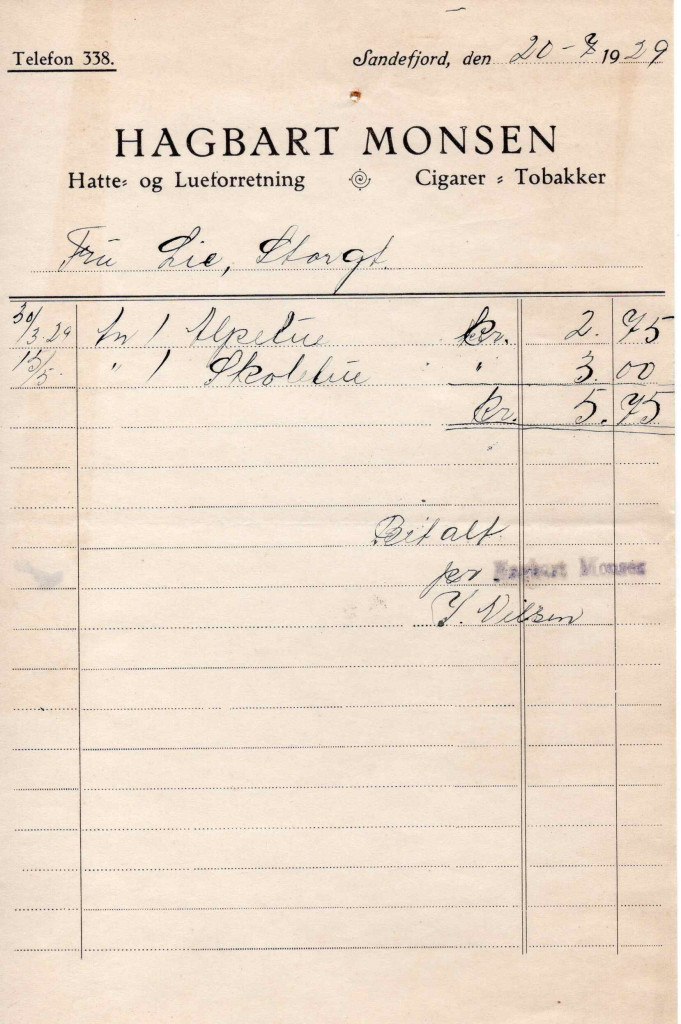 Telefon 338.
Sandefjord, den 20-7 1929
HAGBART MONSEN
Hatte- og Lueforretning Cigarer - Tobakker
Fru Lie, Storgt.
30/3.29 An 1 Alpelue Kr. 2.75
15/5. " 1 Skolelue " 3.00
Kr. 5.75
Betalt
pr Hagbart Monsen
Y. Nilsen